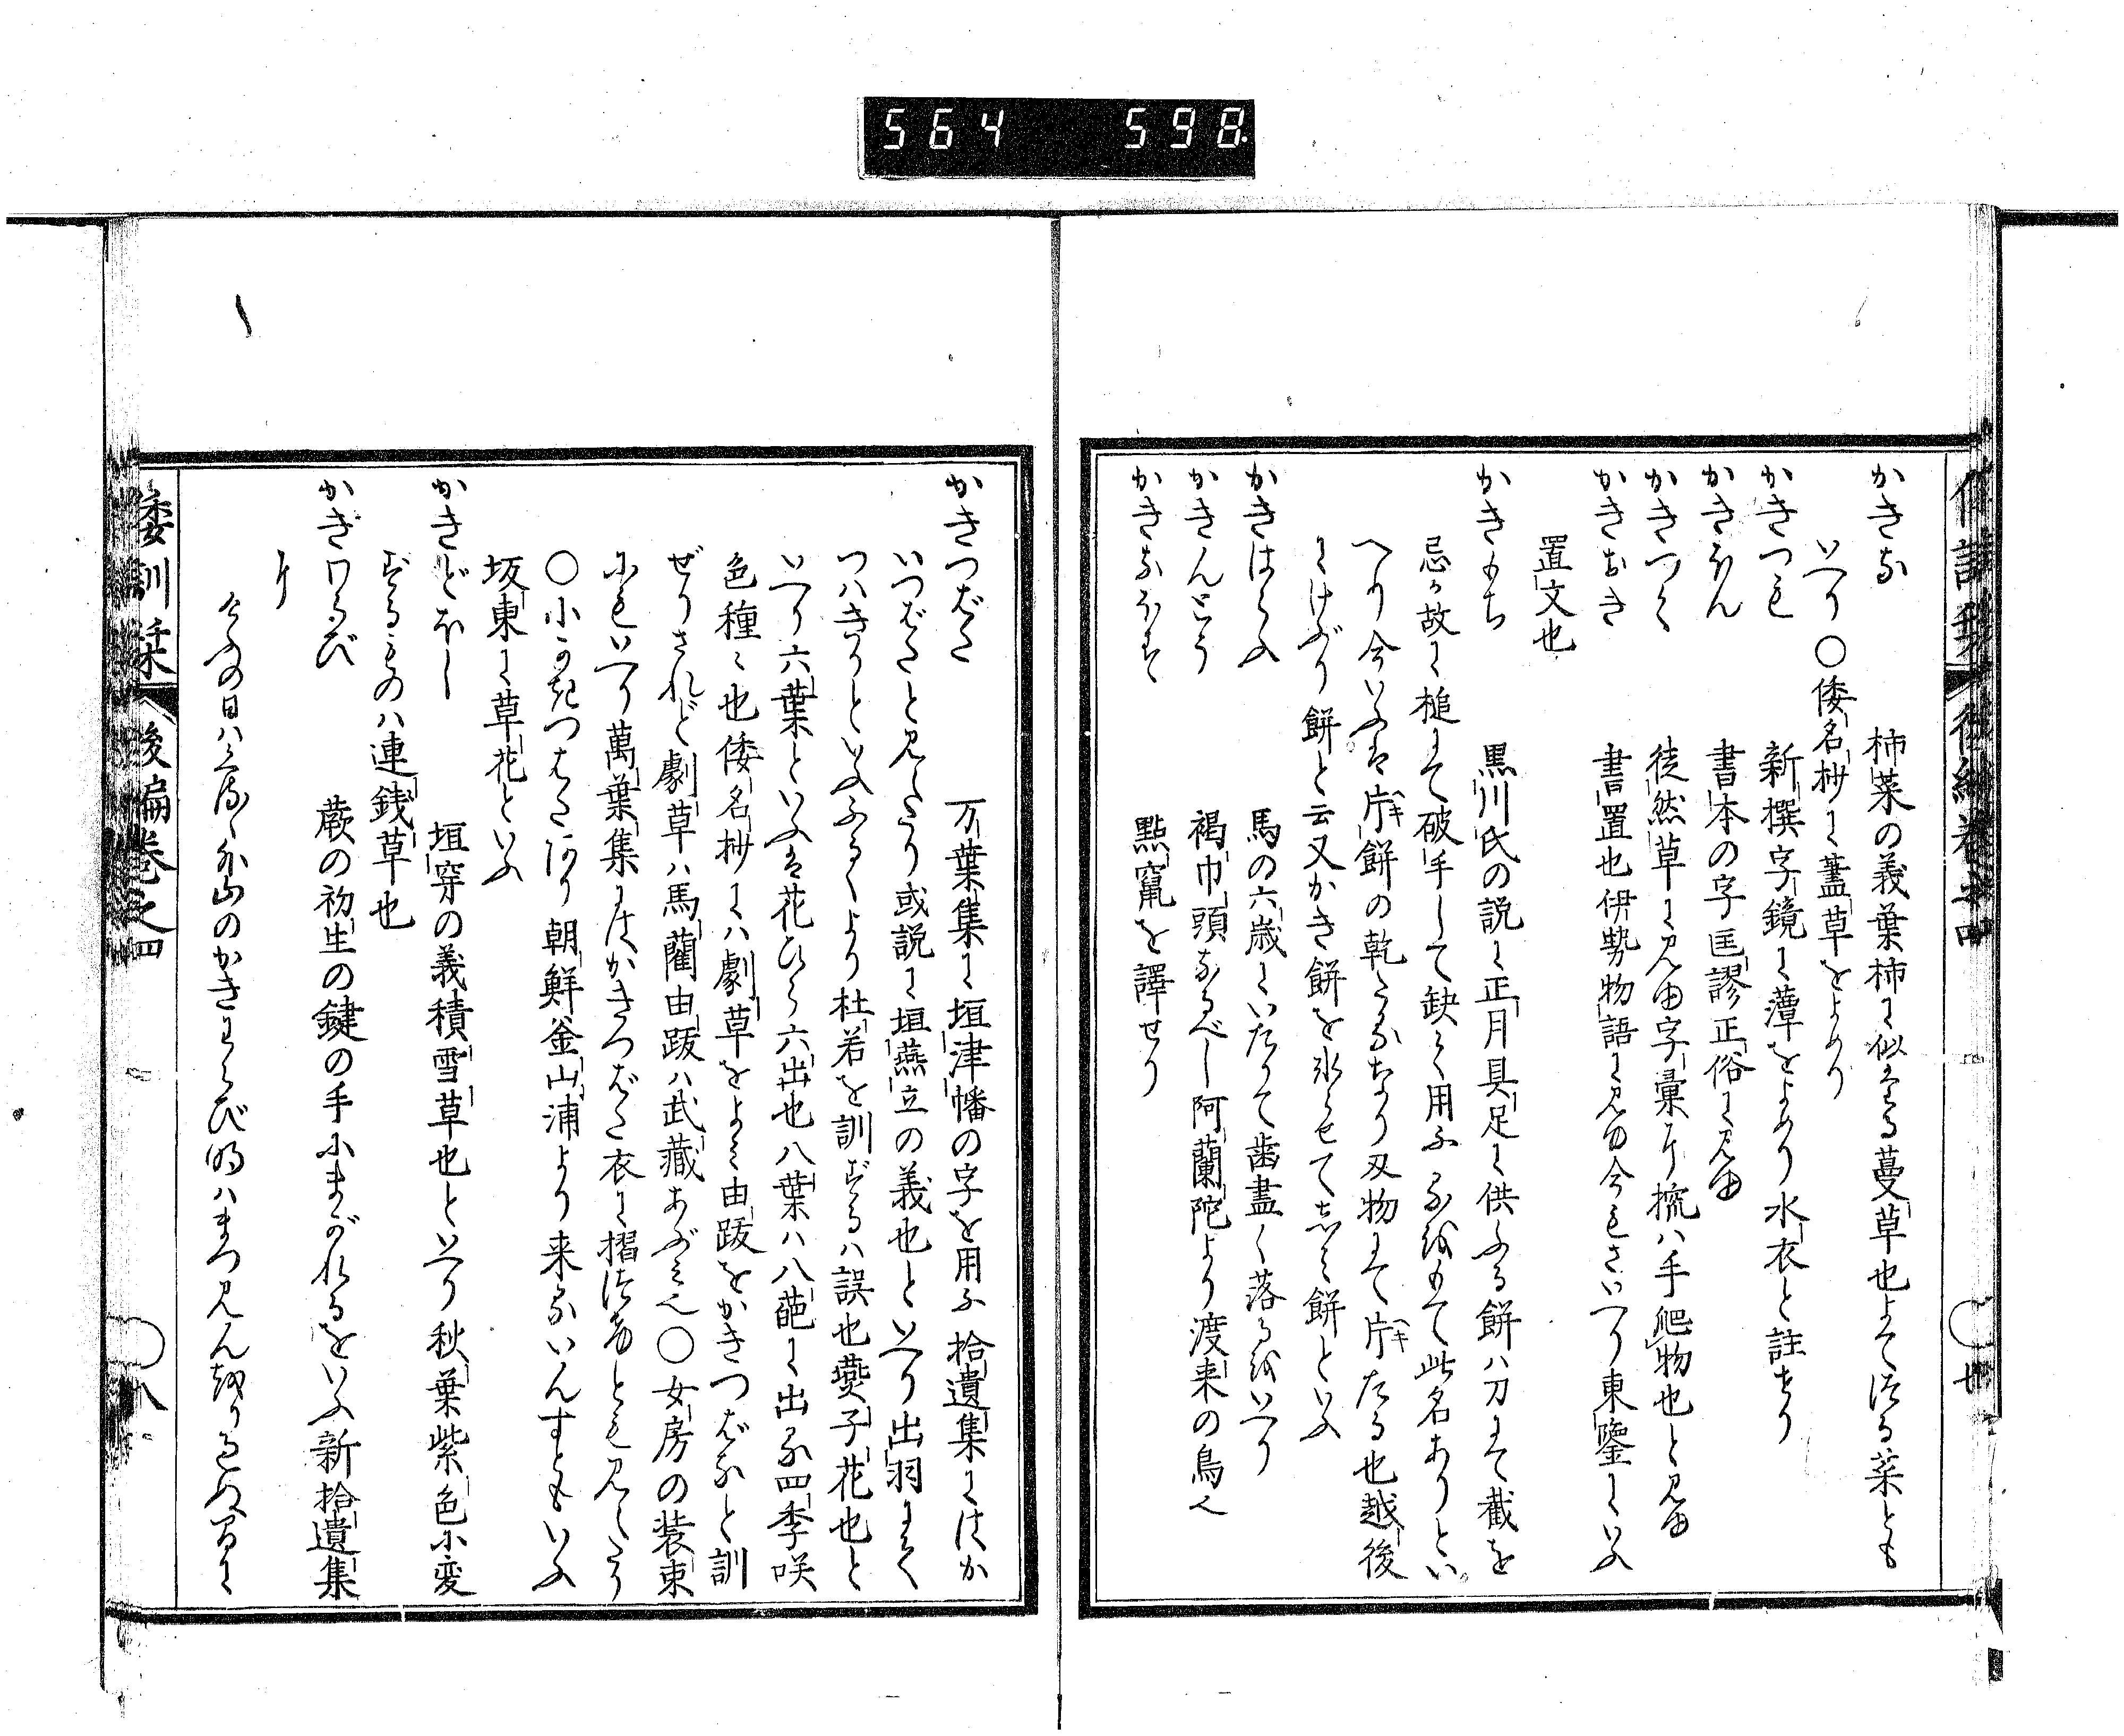 564 598
かきな 柿菜の義葉柿に似たる蔓草也よて名つる菜とも
いへり〇倭名抄に藎草をよめり
かきつも 新撰字鏡に薄をよめり水衣と註せり
かきほん 書本の字匡謬正俗に見ゆ
かきつく 徒然草に見ゆ字彙に㧡ハ手爬物也と見ゆ
かきおき 書置也伊勢物語に見ゆ今もさいへり東鑒にいふ
置文也
かきもち 黒川氏の説に正月具足に供ふる餅ハ刀にて截を
忌か故に槌にて破手して缺く用ふるをもて此名ありとい
へり今いふは片餅の乾たるなり刄物にて片たる也越後
にけづり餅と云又かき餅を氷らせてしみ餅といふ
かきはらふ 馬の六歳にいたりて歯盡く落るをいへり
かきんとう 褐巾頭なるべし阿蘭陀より渡来の鳥也
かきなほす 點竄を譯せり
かきつばた 万葉集に垣津幡の字を用ふ拾遺集にはか
いつばたと見えたり或説に垣燕立の義也といへり出羽にて
つはきりといふふるくより杜若を訓ずるハ誤也燕子花也と
いへり六葉といふは花ひら六出也八葉ハ八葩に出る四季咲
色種〻也倭名抄にハ劇草をよみ由跋をかきつばなと訓
ぜりされど劇草ハ馬藺由跋ハ武蔵あぶみ也〇女房の装束
にもいへり萬葉集にはかきつばた衣に摺つけとも見えたり
〇小かきつはたあり朝鮮釜山浦より来るいんすともいふ
坂東に草花といふ
かきどほし 垣穿の義積雪草也といへり秋葉紫色に変
ずるものハ連銭草也
かぎわらび 蕨の初生の鍵の手にまがれるをいふ新拾遺集
に
けふの日ハくるゝ外山のかきわらび明ハまつ見ん折り過ぬまに
倭訓栞 後編巻之四 〇八